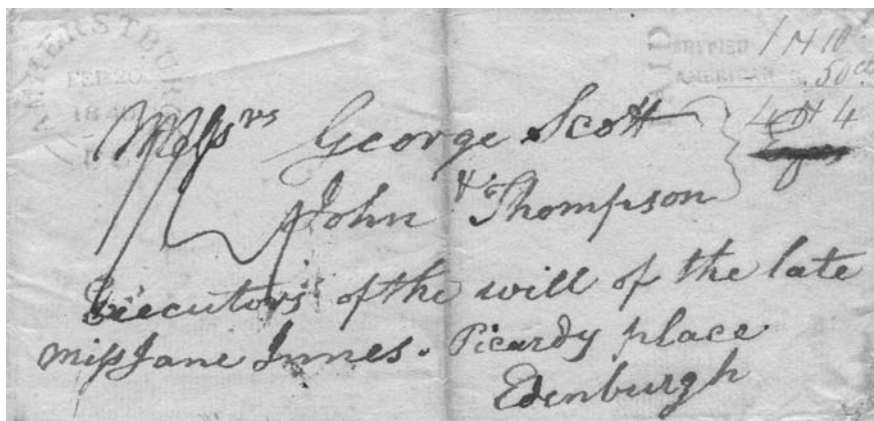 AMHERSTBURG
FEB 20
184
PAID
BRITISH 1 N 10
AMERICAN 50 cts
4 N 4
Messrs George Scott
& John Thompson
Executors of the will of the late
Miss Jane Innes. Picardy place
Edinburgh